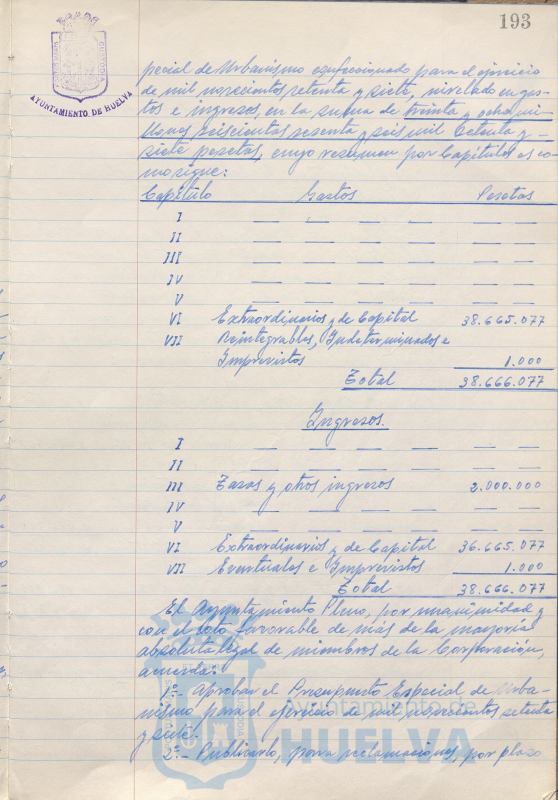 193
AYUNTAMIENTO DE HUELVA
pecial de Urbanismo confeccionado para el ejercicio
de mil novecientos setenta y siete, nivelado en gas-
tos e ingresos, en la suma de treinta y ocho mi-
llones seiscientas sesenta y seis mil setenta y
siete pesetas, cuyo resumen por Capítulos es co-
mo sigue:
Capítulo Gastos Pesetas
I — — — — — — —
II — — — — — — —
III — — — — — — —
IV — — — — — — —
V — — — — — — —
VI Extraordinarios y de Capital 38.665.077
VII Reintegrables, Indeterminados e
Imprevistos 1.000
Total 38.666.077
Ingresos.
I — — — — — — —
II — — — — — — —
III Tasas y otros ingresos 2.000.000
IV — — — — — — —
V — — — — — — —
VI Extraordinarios y de Capital 36.665.077
VII Eventuales e Imprevistos 1.000
Total 38.666.077
El Ayuntamiento Pleno, por unanimidad y
con el voto favorable de más de la mayoría
absoluta legal de miembros de la Corporación,
acuerda:
1º.- Aprobar el Presupuesto Especial de Urba-
nismo para el ejercicio de mil novecientos setenta
y siete.
2º.- Publicarlo, para reclamaciones, por plazo
Ayuntamiento de
HUELVA